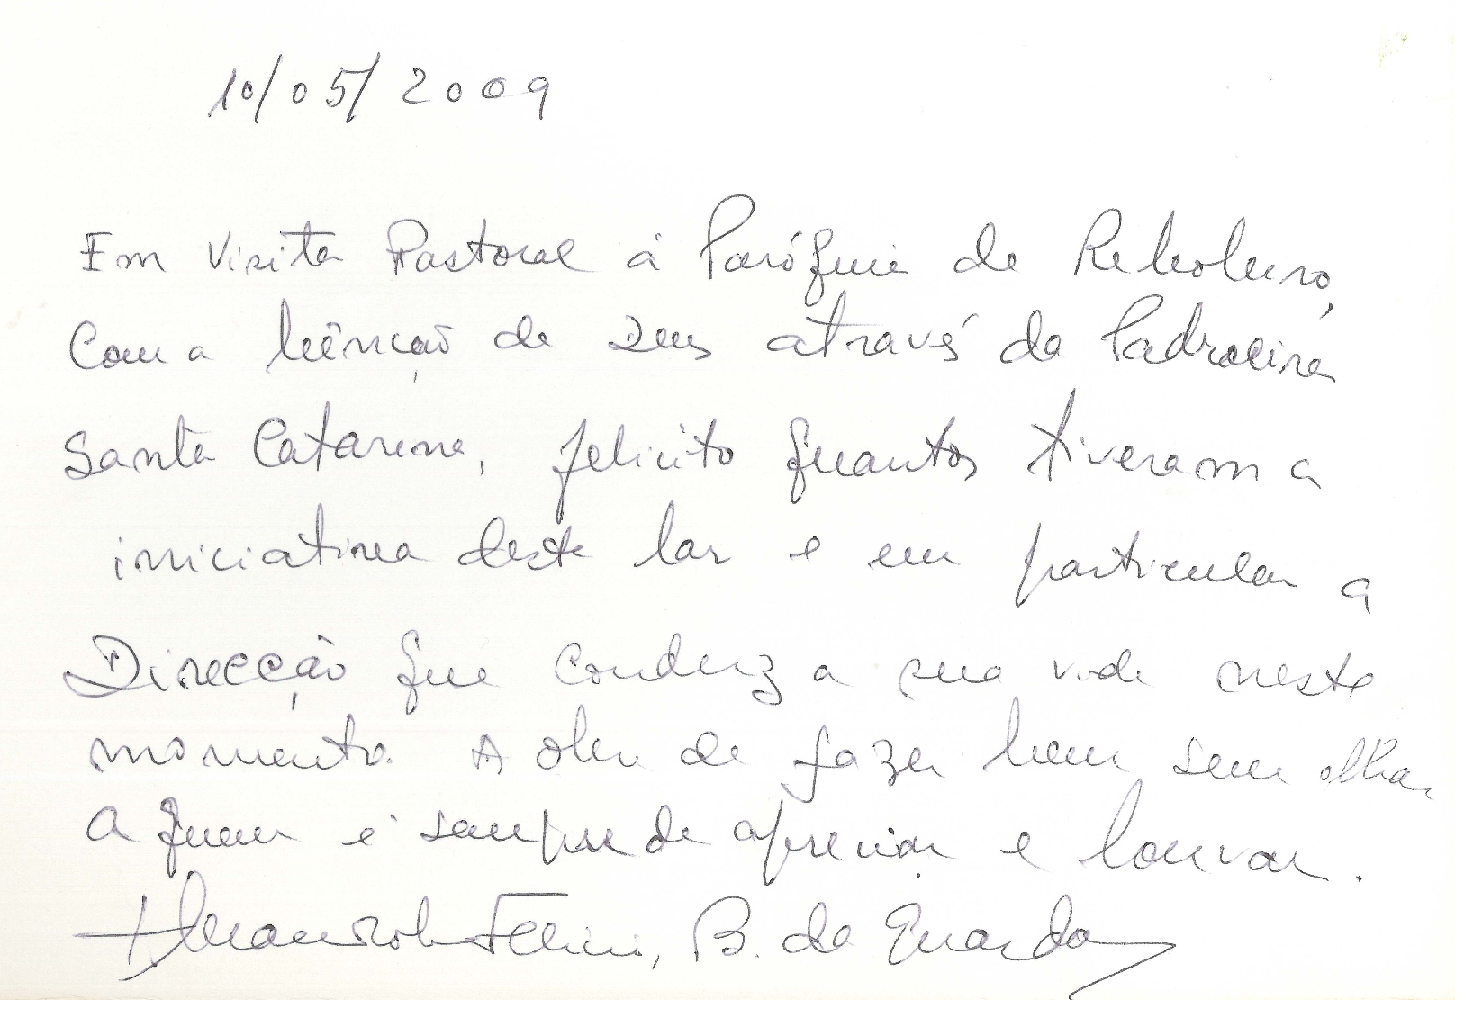 10/05/2009
Em visita Pastoral á Paróquia de Reboleiro,
com a bênção de Deus através da Padroeira
Santa Catarina, felicito quantos tiveram a
iniciativa deste lar e em particular a
Direcção que conduz a sua vida neste
momento. A obra de fazer bem sem olhar
a quem é sempre de apreciar e louvar.
Manuel Felício, B. da Guarda